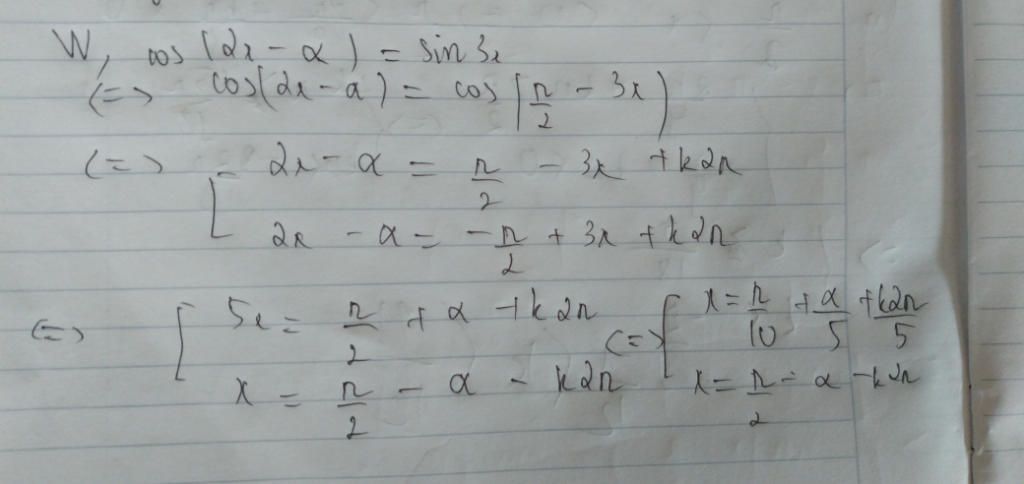 W, cos (2x - α) = sin 3x
<=> cos(2x - α) = cos (π/2 - 3x)
<=> [ 2x - α = π/2 - 3x + k2π
2x - α = -π/2 + 3x + k2π
<=> [ 5x = π/2 + α + k2π <=> [ x = π/10 + α/5 + k2π/5
x = π/2 - α - k2π x = π/2 - α - k2π